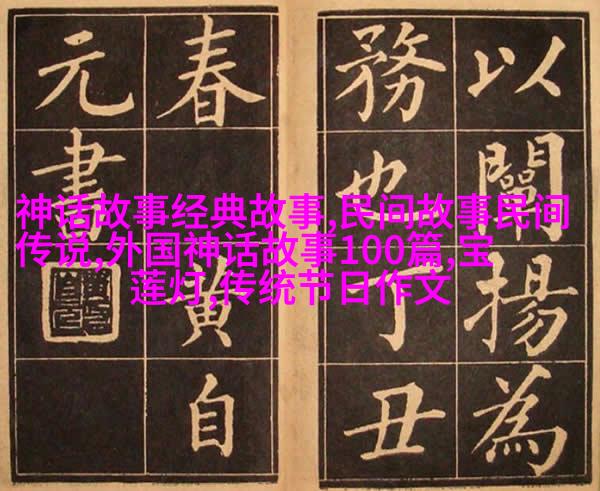 以闡揚為
務也丁丑
春黃自
元書
神话故事经典故事,民间故事民间
传说,外国神话故事100篇,宝
莲灯,传统节日作文